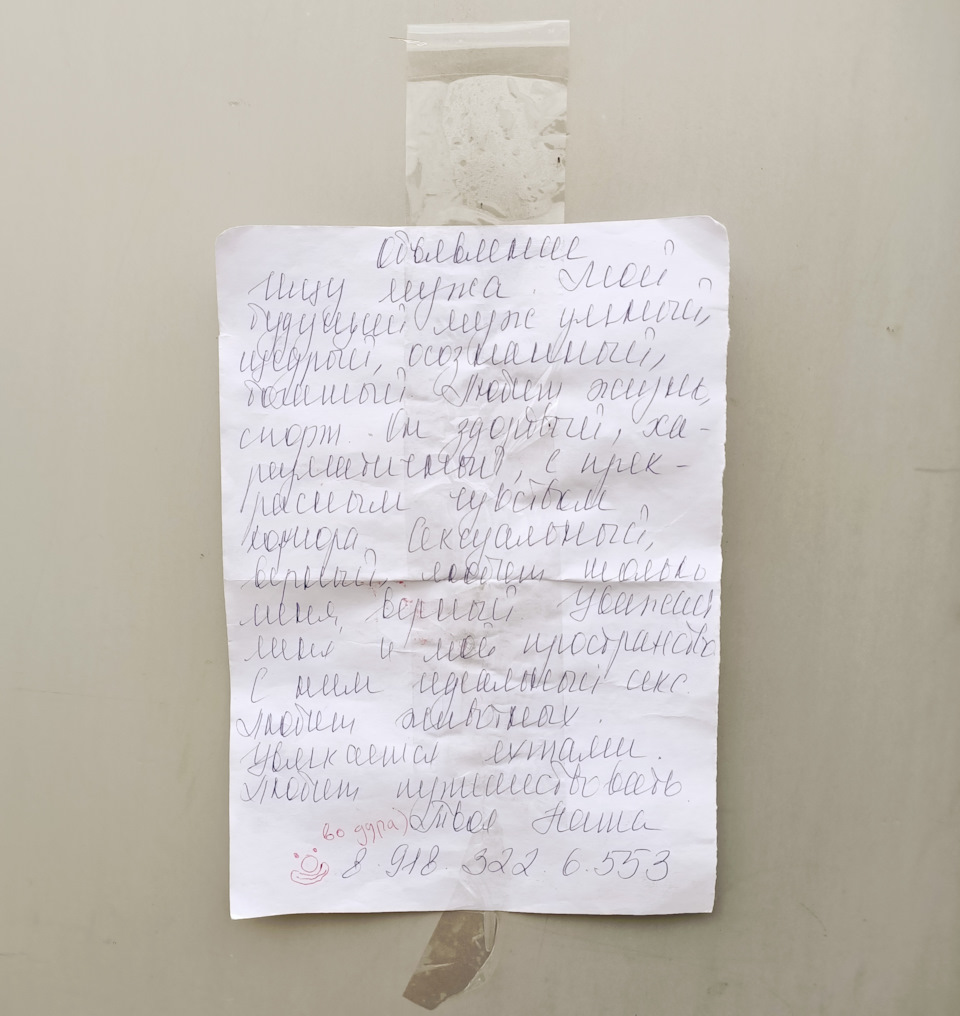 Объявление
Ищу мужа. Мой
будущий муж умный,
щедрый, осознанный,
Любит жизнь,
спорт. Он здоровый, ха-
ризматичный, с прек-
расным чувством
юмора. Сексуальный,
верный, любит только
меня, верный. Уважает
меня и моё пространство
С ним идеальный секс.
Любит животных.
Увлекается яхтами.
Любит путешествовать
во дура) Твоя Наташа
8.918.322.6.553